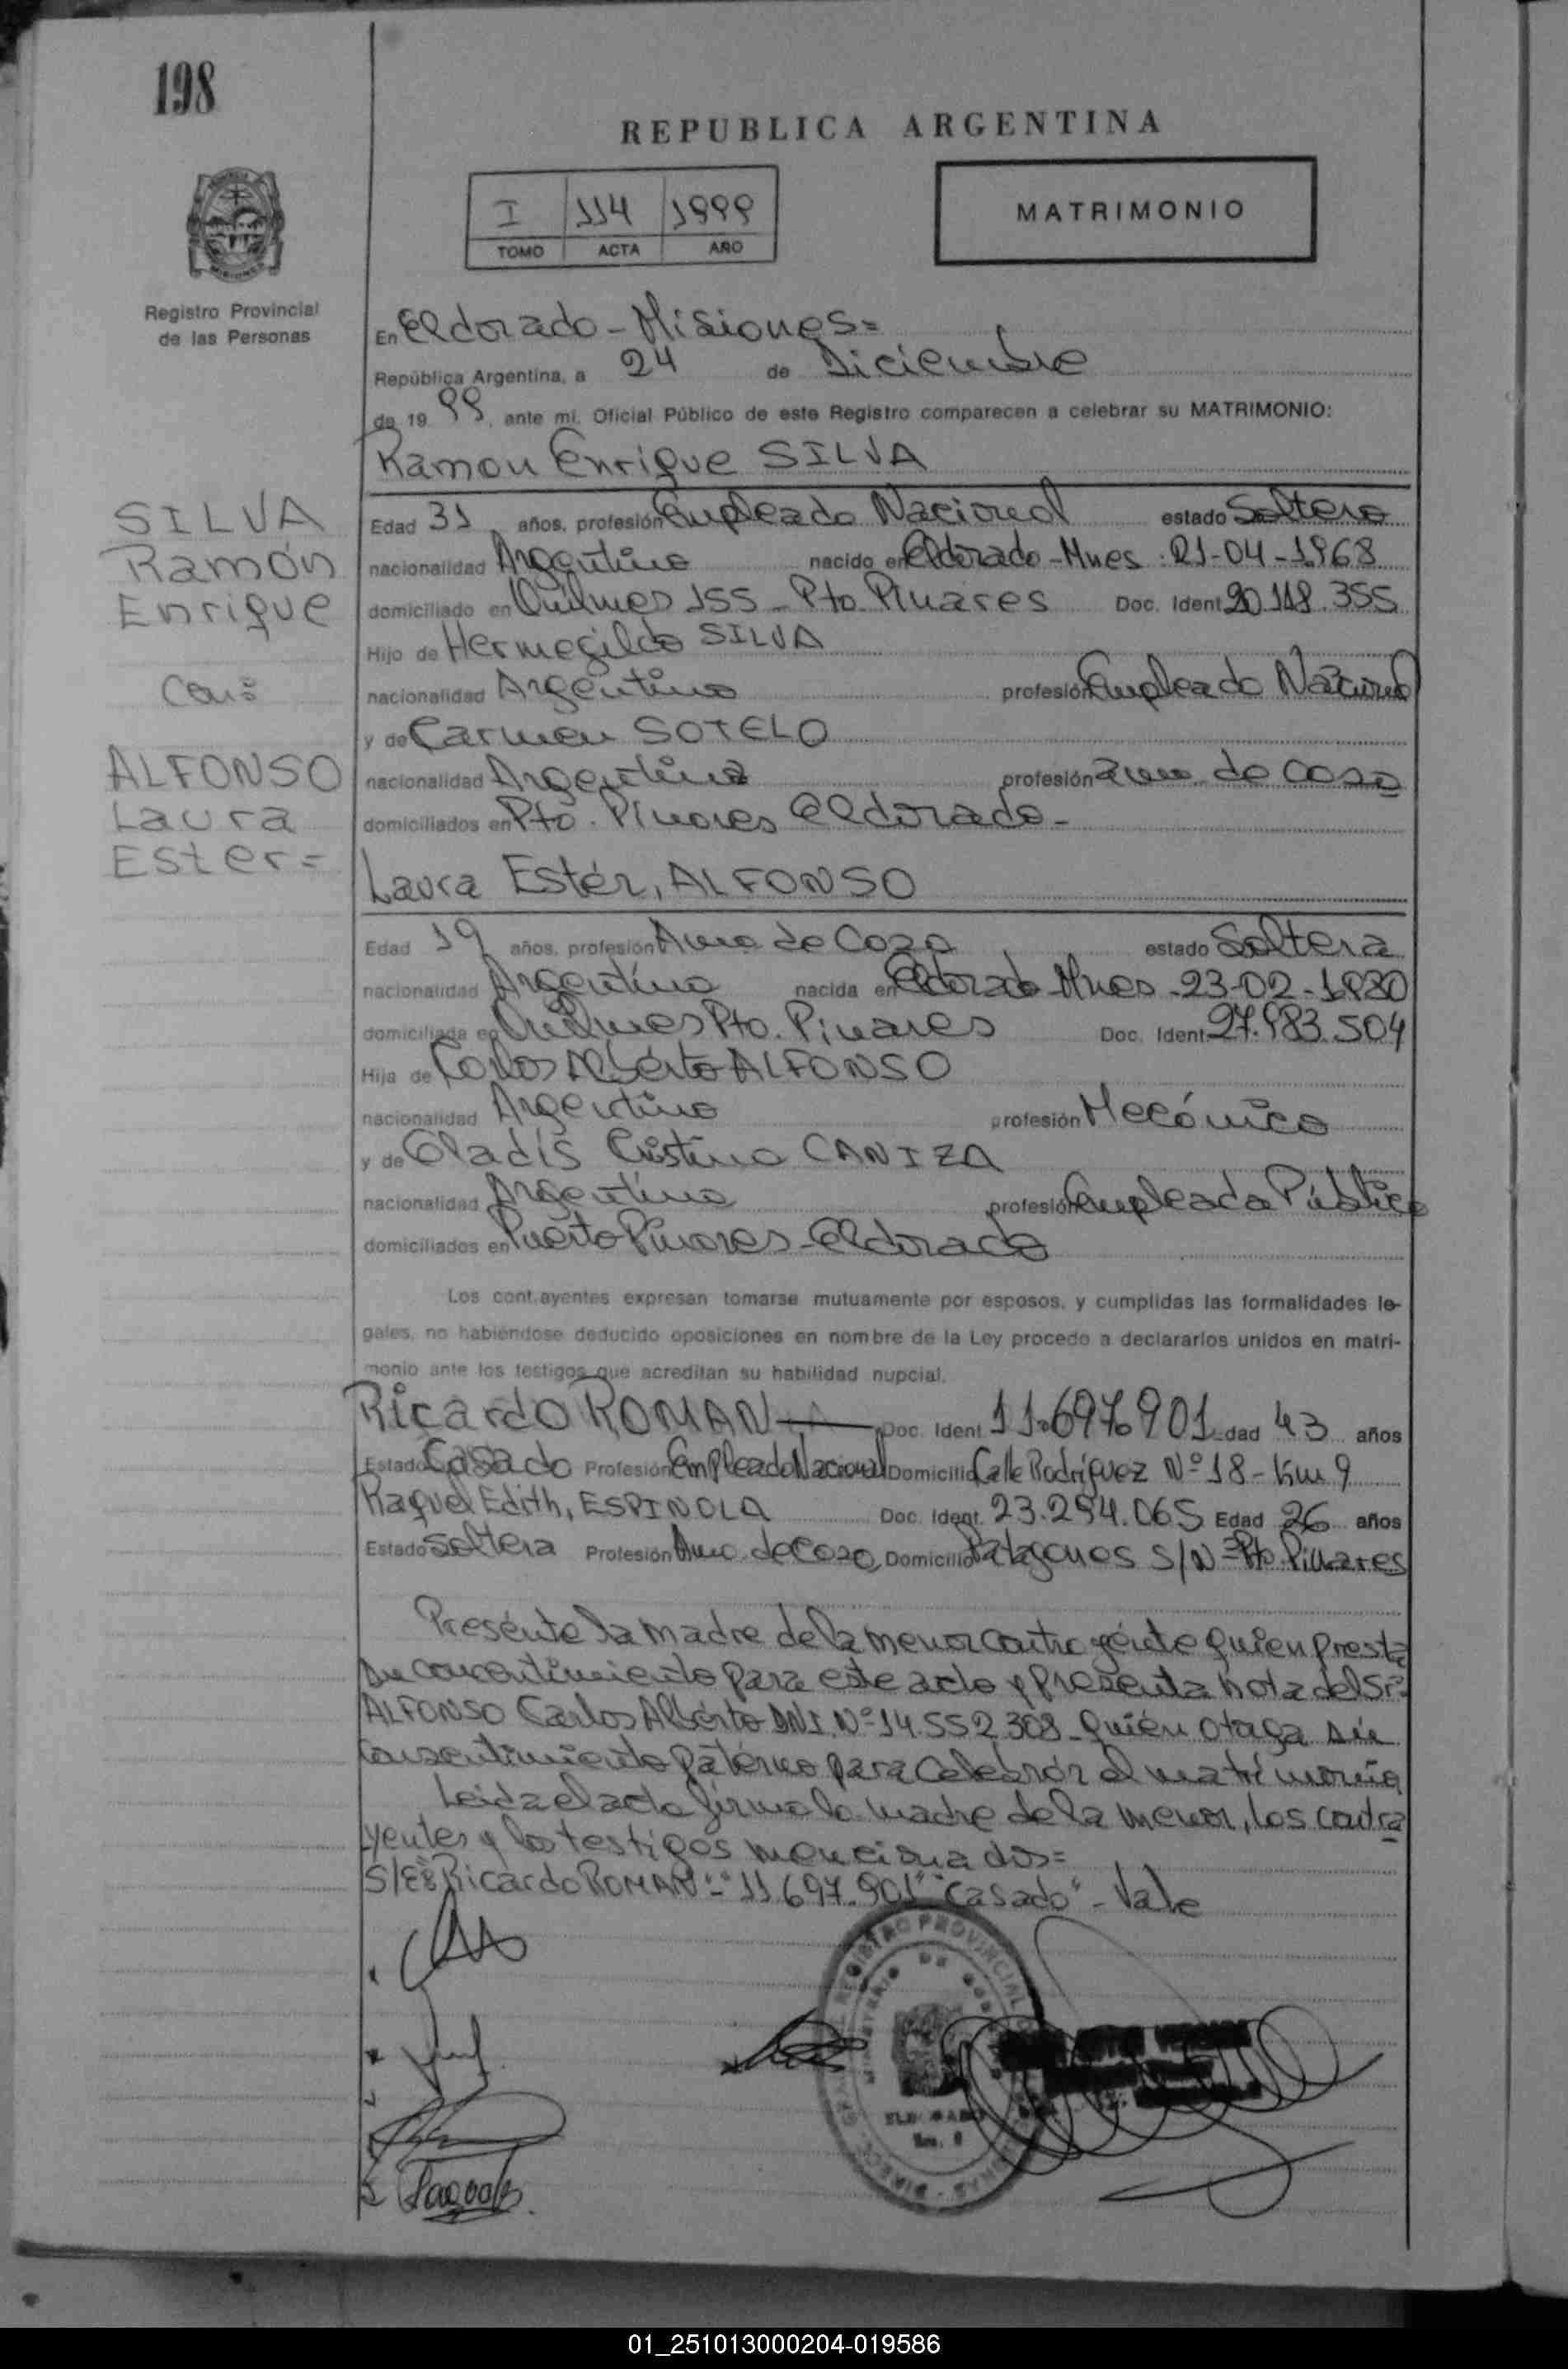 198
REPUBLICA ARGENTINA
I 114 1999
TOMO ACTA AÑO
MATRIMONIO
Registro Provincial
de las Personas
En Eldorado - Misiones=
República Argentina, a 24 de Diciembre
de 19 99, ante mi. Oficial Público de este Registro comparecen a celebrar su MATRIMONIO:
Ramon Enrique SILVA
SILVA
Ramón
Enrique
Con:
ALFONSO
Laura
Ester=
Edad 31 años, profesión Empleado Nacional estado Soltero
nacionalidad Argentino nacido en Eldorado - Mnes. 21-04-1968
domiciliado en Quilmes 155 - Pto. Pinares Doc. Ident 20.118.355
Hijo de Hermegildo SILVA
nacionalidad Argentino profesión Empleado Nacional
y de Carmen SOTELO
nacionalidad Argentina profesión ama de casa
domiciliados en Pto. Pinares Eldorado -
Laura Estér, ALFONSO
Edad 19 años, profesión Ama de Casa estado Soltera
nacionalidad Argentina nacida en Eldorado Mnes - 23-02-1980
domiciliada en Quilmes Pto. Pinares Doc. Ident 27.983.504
Hija de Carlos Albérto ALFONSO
nacionalidad Argentino profesión Mecánico
y de Gladis Cristina CANIZA
nacionalidad Argentina profesión Empleada Pública
domiciliados en Puerto Pinares - Eldorado
Los contrayentes expresan tomarse mutuamente por esposos, y cumplidas las formalidades le-
gales, no habiéndose deducido oposiciones en nombre de la Ley procedo a declararlos unidos en matri-
monio ante los testigos que acreditan su habilidad nupcial.
Ricardo ROMAN Doc. Ident 11.697.901 Edad 43 años
Estado Casado Profesión Empleado Nacional Domicilio Calle Rodríguez Nº 18 - Km 9
Raquel Edith, ESPINOLA Doc. Ident. 23.294.065 Edad 26 años
Estado Soltera Profesión Ama de Casa Domicilio Patagones S/N - Pto. Pinares
Presénte la madre de la menor contrayénte quien presta
su consentimiento para este acto y presenta nota del Sr.
ALFONSO Carlos Albérto DNI. Nº 14.552.308 - quién otorga su
consentimiento patérno para celebrár el matrimonio
Leida el acta firma la madre de la menor, los contra
yentes y los testigos mencionados=
S/E: Ricardo ROMAN" - "11.697.901" "Casado" - Vale
REGISTRO PROVINCIAL
ELDORADO
01_251013000204-019586